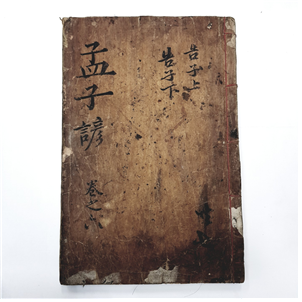 告子上
告子下
孟子諺
卷之六